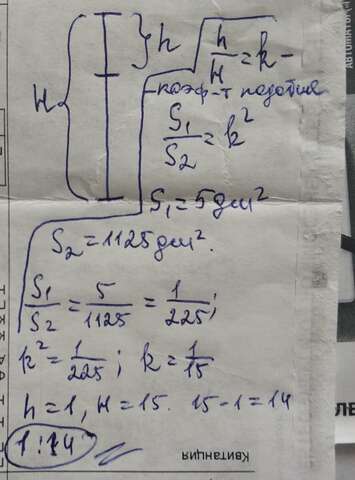 h
H
h/H = k –
коэф-т подобия
S₁/S₂ = k²
S₁ = 5 дм²
S₂ = 1125 дм².
S₁/S₂ = 5/1125 = 1/225;
k² = 1/225; k = 1/15
h = 1, H = 15. 15 - 1 = 14
1:14
Квитанция